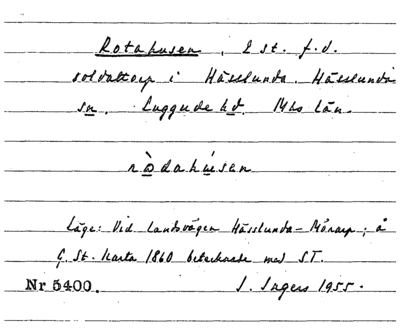 Rotahusen, 2 st. f.d.
soldattorp i Hässlunda. Hässlunda
sn. Luggude hd. Mhs län.
ròdahúsen
Läge: Vid landsvägen Hässlunda–Mörarp; å
G. St. Karta 1860 betecknade med ST.
Nr 5400. J. Ingers 1955.